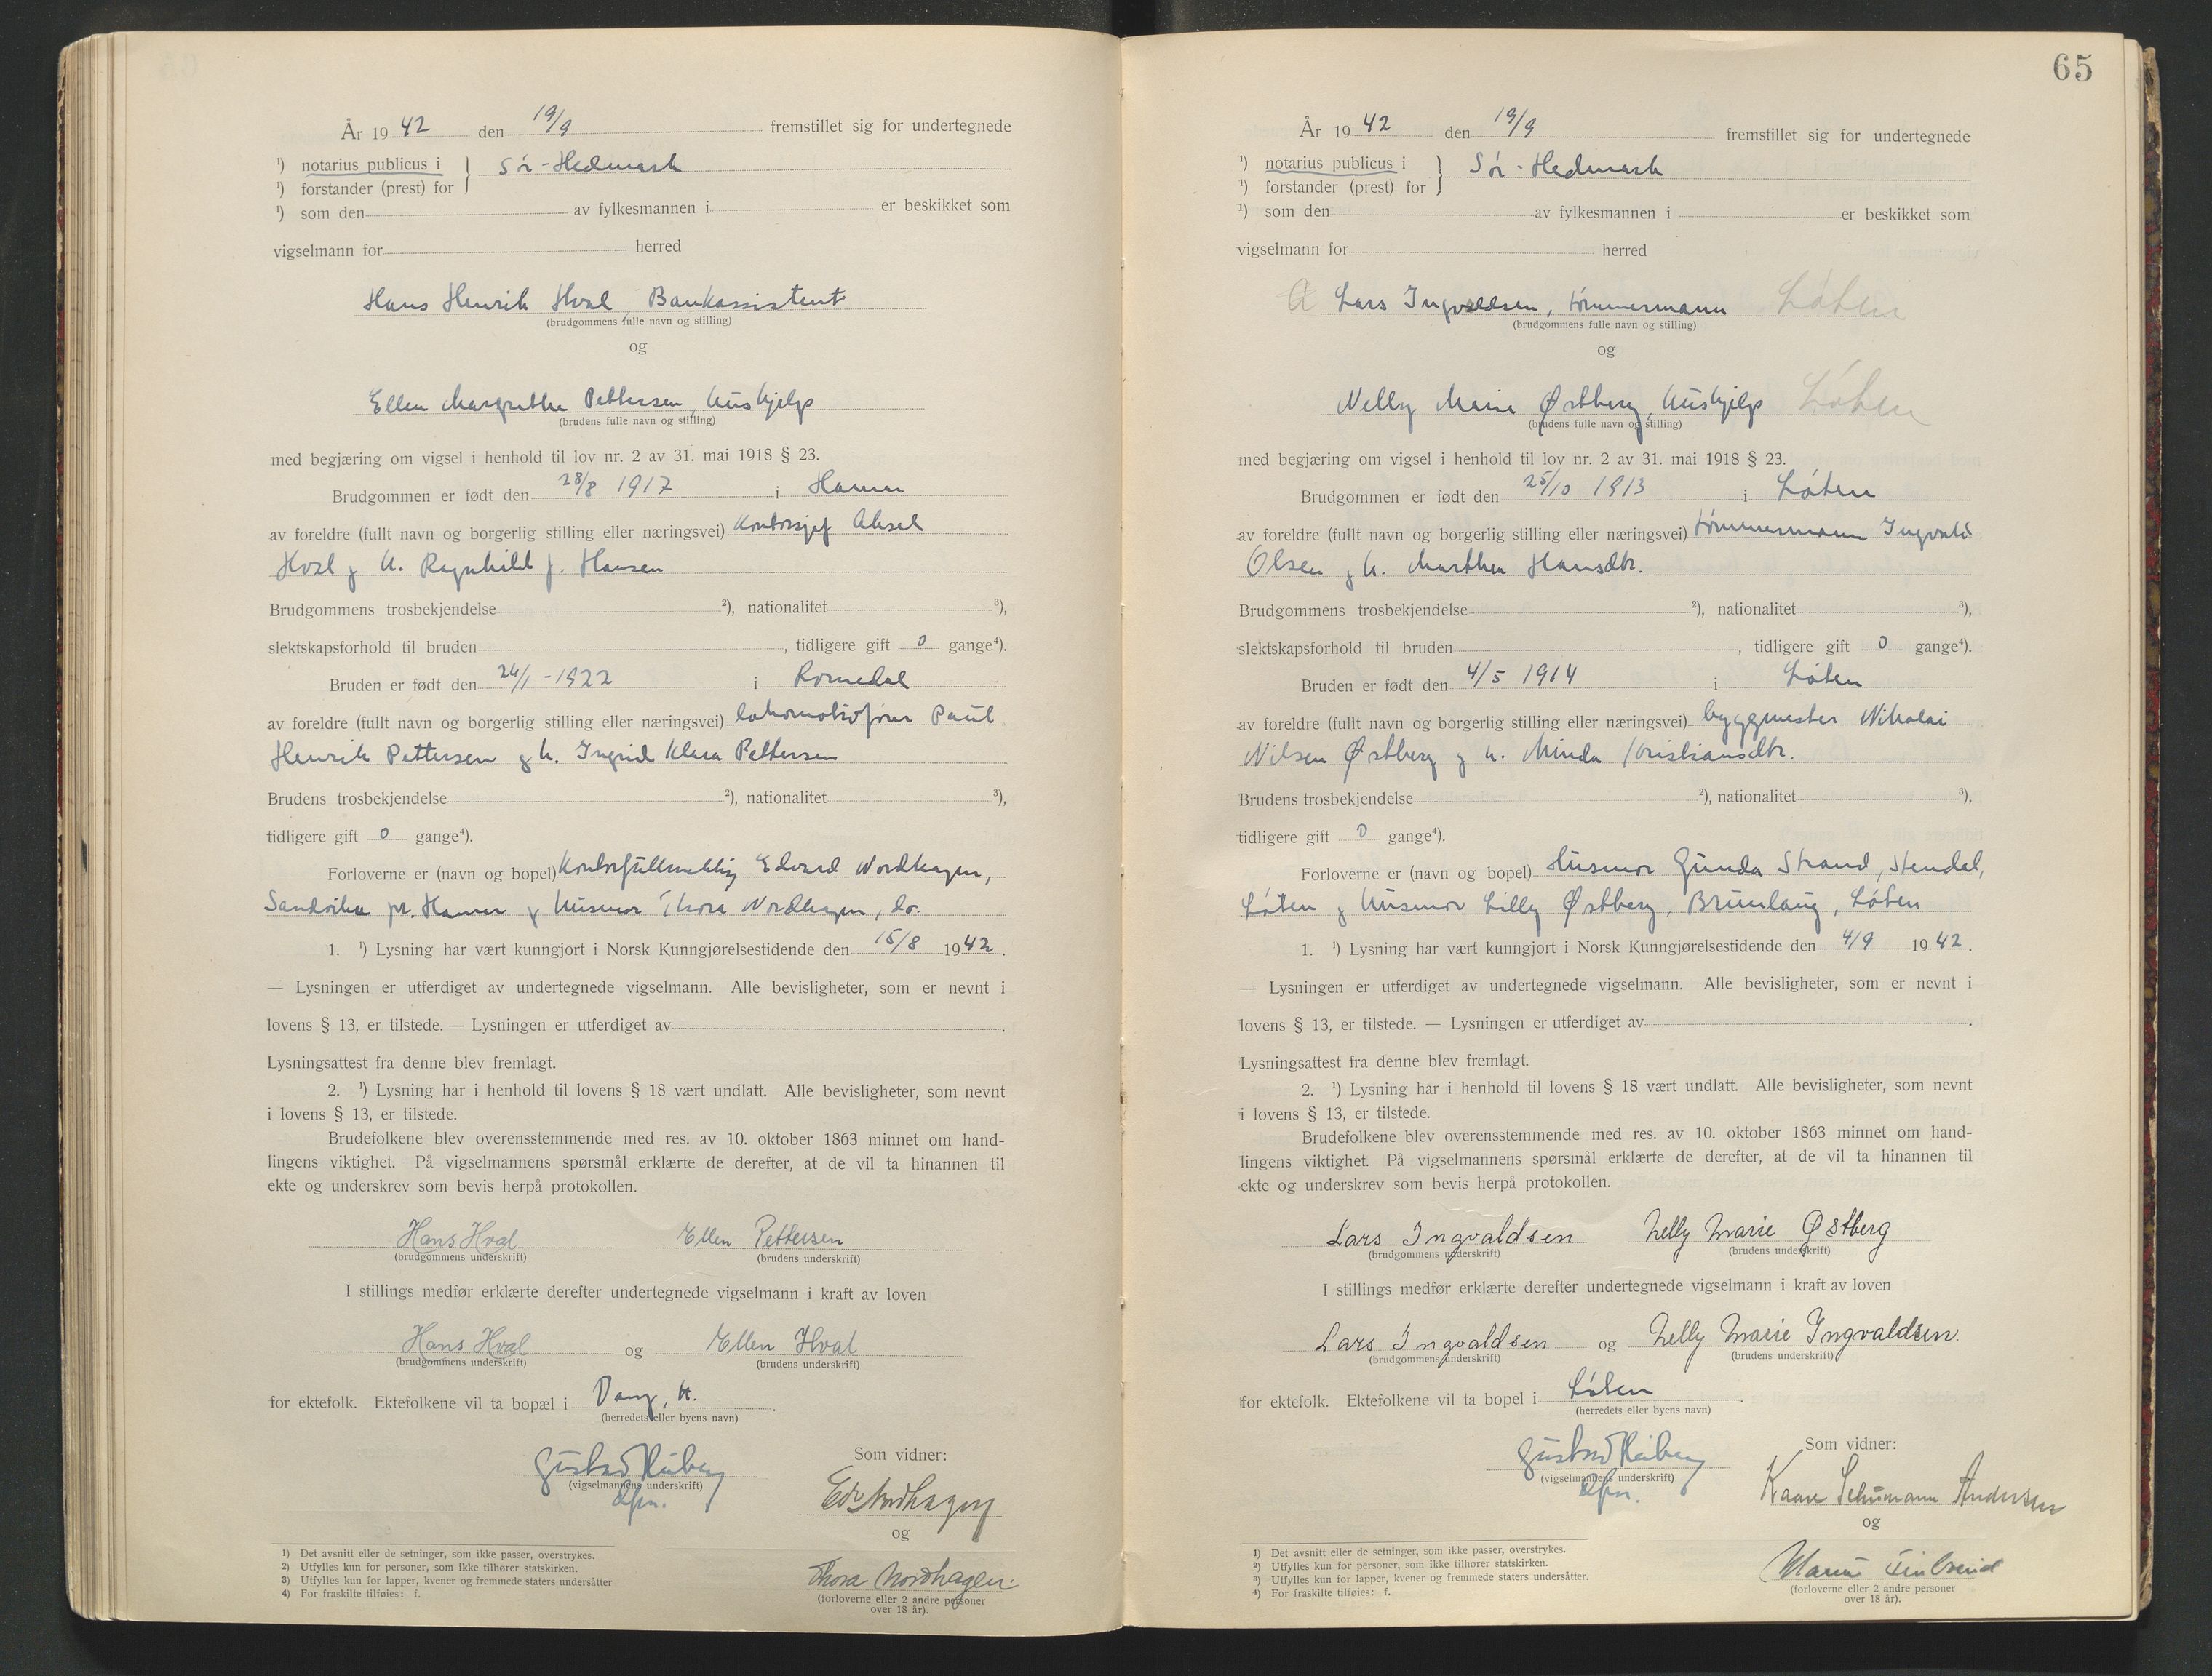 År 19 42 den 19/9 fremstillet sig for undertegnede
¹) notarius publicus i } Sør-Hedmark
¹) forstander (prest) for
¹) som den av fylkesmannen i er beskikket som
vigselmann for herred
Hans Henrik Hval, Bankassistent
(brudgommens fulle navn og stilling)
og
Ellen Margrethe Pettersen, hushjelp
(brudens fulle navn og stilling)
med begjæring om vigsel i henhold til lov nr. 2 av 31. mai 1918 § 23.
Brudgommen er født den 28/8 1917 i Hamar
av foreldre (fullt navn og borgerlig stilling eller næringsvei) Kontorsjef Aksel
Hval og h. Ragnhild f. Hansen
Brudgommens trosbekjendelse ²), nationalitet ³),
slektskapsforhold til bruden , tidligere gift 0 gange⁴).
Bruden er født den 24/1 - 1922 i Romedal
av foreldre (fullt navn og borgerlig stilling eller næringsvei) lokomotivfører Paul
Henrik Pettersen og h. Ingrid Klara Pettersen
Brudens trosbekjendelse ²), nationalitet ³),
tidligere gift 0 gange⁴).
Forloverne er (navn og bopel) Kontorfullmektig Edvard Nordhagen,
Sandvika pr. Hamar og husmor Thora Nordhagen, do.
1. ¹) Lysning har vært kunngjort i Norsk Kunngjørelsestidende den 15/8 1942.
— Lysningen er utferdiget av undertegnede vigselmann. Alle bevisligheter, som er nevnt i
lovens § 13, er tilstede. — Lysningen er utferdiget av .
Lysningsattest fra denne blev fremlagt.
2. ¹) Lysning har i henhold til lovens § 18 vært undlatt. Alle bevisligheter, som nevnt
i lovens § 13, er tilstede.
Brudefolkene blev overensstemmende med res. av 10. oktober 1863 minnet om hand-
lingens viktighet. På vigselmannens spørsmål erklærte de derefter, at de vil ta hinannen til
ekte og underskrev som bevis herpå protokollen.
Hans Hval Ellen Pettersen
(brudgommens underskrift) (brudens underskrift)
I stillings medfør erklærte derefter undertegnede vigselmann i kraft av loven
Hans Hval og Ellen Hval
(brudgommens underskrift) (brudens underskrift)
for ektefolk. Ektefolkene vil ta bopæl i Vang, H.
(herredets eller byens navn)
Gustav Heiberg
(vigselmannens underskrift)
dfm.
Som vidner:
Edv Nordhagen
og
Thora Nordhagen.
(forloverne eller 2 andre personer
over 18 år).
¹) Det avsnitt eller de setninger, som ikke passer, overstrykes.
²) Utfylles kun for personer, som ikke tilhører statskirken.
³) Utfylles kun for lapper, kvener og fremmede staters undersåtter
⁴) For fraskilte tilføies: f.
65
År 19 42 den 19/9 fremstillet sig for undertegnede
¹) notarius publicus i } Sør-Hedmark
¹) forstander (prest) for
¹) som den av fylkesmannen i er beskikket som
vigselmann for herred
A Lars Ingvaldsen, tømmermann Løten
(brudgommens fulle navn og stilling)
og
Nelly Marie Østberg, hushjelp Løten
(brudens fulle navn og stilling)
med begjæring om vigsel i henhold til lov nr. 2 av 31. mai 1918 § 23.
Brudgommen er født den 25/10 1913 i Løten
av foreldre (fullt navn og borgerlig stilling eller næringsvei) tømmermann Ingvald
Olsen og h. Marthea Hansdtr.
Brudgommens trosbekjendelse ²), nationalitet ³),
slektskapsforhold til bruden , tidligere gift 0 gange⁴).
Bruden er født den 4/5 1914 i Løten
av foreldre (fullt navn og borgerlig stilling eller næringsvei) byggmester Nikolai
Nilsen Østberg og h. Minda Kristiansdtr.
Brudens trosbekjendelse ²), nationalitet ³),
tidligere gift 0 gange⁴).
Forloverne er (navn og bopel) Husmor Gunda Strand, Stendal,
Løten og husmor Lilly Østberg, Brunlaug, Løten
1. ¹) Lysning har vært kunngjort i Norsk Kunngjørelsestidende den 4/9 1942.
— Lysningen er utferdiget av undertegnede vigselmann. Alle bevisligheter, som er nevnt i
lovens § 13, er tilstede. — Lysningen er utferdiget av .
Lysningsattest fra denne blev fremlagt.
2. ¹) Lysning har i henhold til lovens § 18 vært undlatt. Alle bevisligheter, som nevnt
i lovens § 13, er tilstede.
Brudefolkene blev overensstemmende med res. av 10. oktober 1863 minnet om hand-
lingens viktighet. På vigselmannens spørsmål erklærte de derefter, at de vil ta hinannen til
ekte og underskrev som bevis herpå protokollen.
Lars Ingvaldsen Nelly Marie Østberg
(brudgommens underskrift) (brudens underskrift)
I stillings medfør erklærte derefter undertegnede vigselmann i kraft av loven
Lars Ingvaldsen og Nelly Marie Ingvaldsen.
(brudgommens underskrift) (brudens underskrift)
for ektefolk. Ektefolkene vil ta bopel i Løten.
(herredets eller byens navn)
Gustav Heiberg
(vigselmannens underskrift)
dfm.
Som vidner:
Kaare Schumann Andersen
og
(forloverne eller 2 andre personer
over 18 år).
¹) Det avsnitt eller de setninger, som ikke passer, overstrykes.
²) Utfylles kun for personer, som ikke tilhører statskirken.
³) Utfylles kun for lapper, kvener og fremmede staters undersåtter.
⁴) For fraskilte tilføies: f.